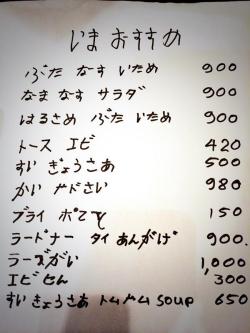 いま おすすめ
ぶた なす いため 900
なま なす サラダ 900
はるさめ ぶた いため 900
トース エビ 420
すい ぎょうさあ 500
かい やさい 980
ブライ ポテト 150
ラードナー タイ あんかげ 900
ラーズがい 1,000
エビ せん 300
すい きょうさあ トムヤム SOUP 650